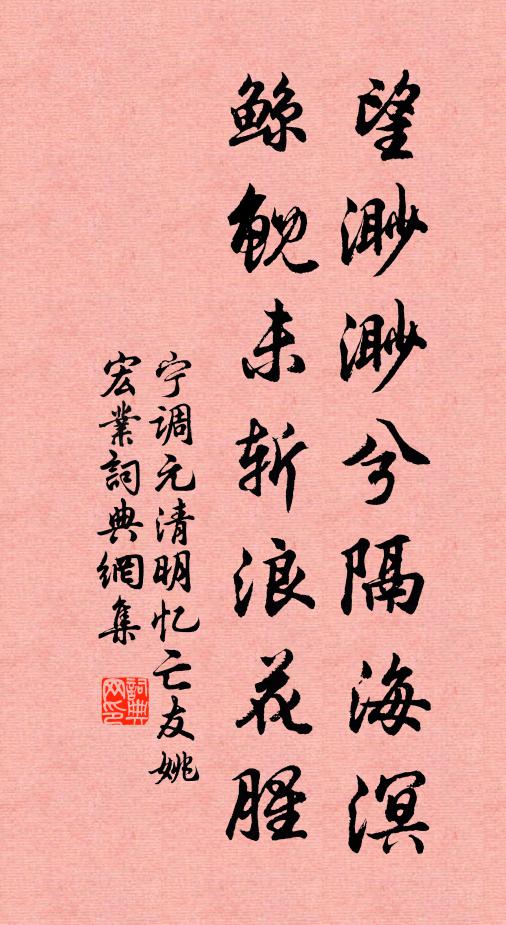 望渺渺兮隔海溟
鲸鲵未斩浪花腥
宁调元清明忆亡友姚
宏業詞典網集
詞典網印